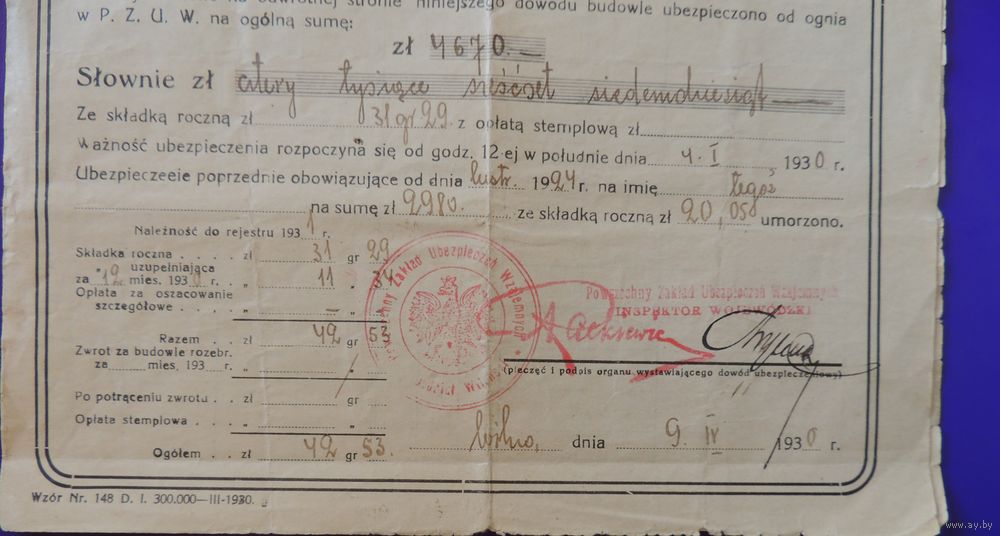 niniejszego dowodu budowle ubezpieczono od ognia
w P. Z. U. W. na ogólną sumę:
zł 4670.—
Słownie zł cztery tysiące sześćset siedemdziesiąt —
Ze składką roczną zł 31 gr 29 z opłatą stemplową zł
Ważność ubezpieczenia rozpoczyna się od godz. 12-ej w południe dnia 4. I, 1930 r.
Ubezpieczeeie poprzednie obowiązujące od dnia lustr. 1924 r. na imię tegoż
na sumę zł 2980. ze składką roczną zł 20,05 umorzono.
Należność do rejestru 1931 r.
Składka roczna . . . . zł 31 gr 29
" uzupełniająca
za 12 mies. 1930 r. . „ 11 „
Opłata za oszacowanie
szczegółowe . . . . „ — „
Razem . . zł 42 gr 53
Zwrot za budowle rozebr.
za mies, 193 r. „ „
Po potrąceniu zwrotu . . zł gr
Opłata stemplowa . . . „ „
Ogółem . . zł 42 gr 53.
Powszechny Zakład Ubezpieczeń Wzajemnych
INSPEKTOR WOJEWÓDZKI
(pieczęć i podpis organu wystawiającego dowód ubezpieczeniowy)
Wilno, dnia 9. IV 1930 r.
Powszechny Zakład Ubezpieczeń Wzajemnych
Wzór Nr. 148 D. I. 300.000—III-1930.
www.ay.by